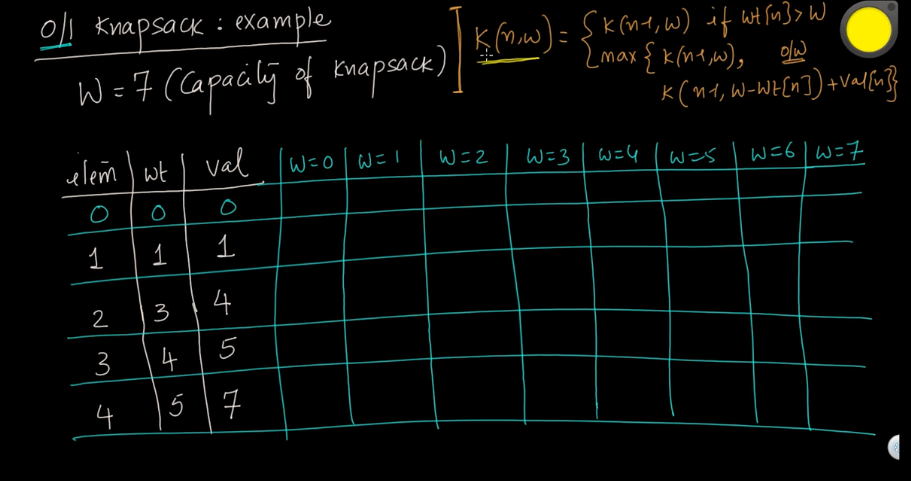 0/1 Knapsack : example
W = 7 (Capacity of Knapsack)
K(n,w) = { K(n-1, w) if wt[n] > W
max { K(n-1, w), o/w
K(n-1, W-Wt[n]) + Val[n] }
elem wt val W=0 W=1 W=2 W=3 W=4 W=5 W=6 W=7
0 0 0
1 1 1
2 3 4
3 4 5
4 5 7